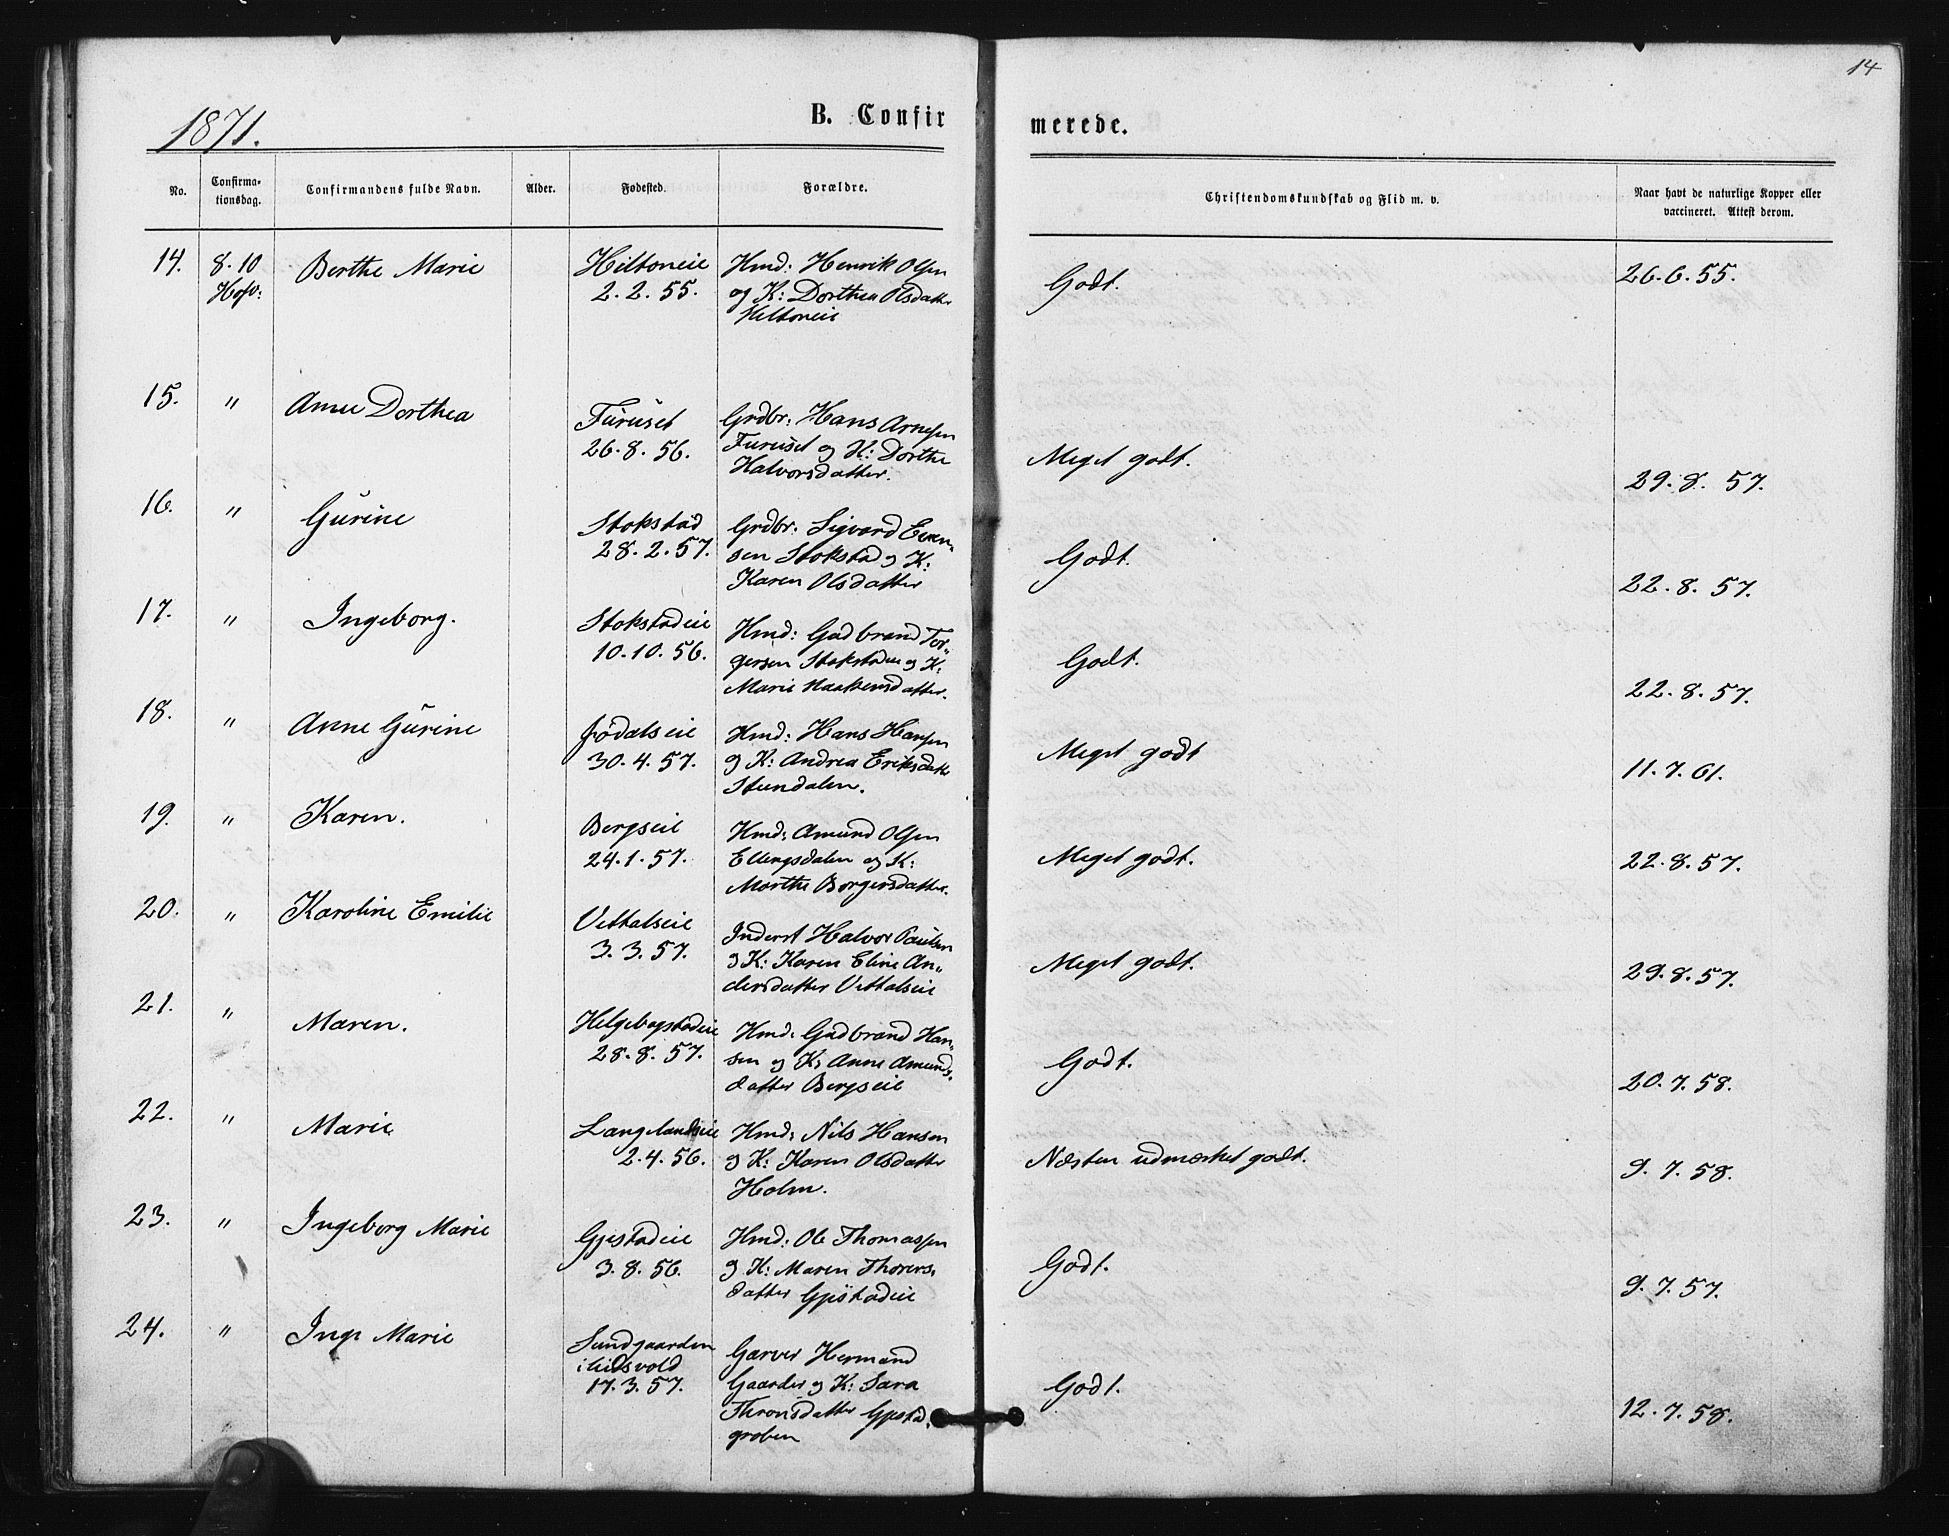 14
1871.
B. Confirmerede.
No.
Confirma-
tionsdag.
Confirmandens fulde Navn.
Alder.
Fødested.
Forældre.
Christendomskundskab og Flid m. v.
Naar havt de naturlige Kopper eller
vaccineret. Attest derom.
14.
8.10
Hofv:
Berthe Marie
Hiltoneie
2.2.55.
Hmd: Henrik Olsen
og K: Dorthea Olsdatter
Hiltoneie
Godt.
26.6.55.
15.
"
Anne Dorthea
Furuset
26.8.56.
Grdbr: Hans Arnesen
Furuset og K: Dorthe
Halvorsdatter.
Meget godt.
29.8.57.
16.
"
Gurine
Stokstad
28.2.57.
Grdbr. Sigvard Even-
sen Stokstad og K:
Karen Olsdatter
Godt.
22.8.57.
17.
"
Ingeborg.
Stokstadeie
10.10.56.
Hmd: Gudbrand Tor-
gersen Stokstadeie og K:
Marie Haakensdatter.
Godt.
22.8.57.
18.
"
Anne Gurine
Jødalseie
30.4.57.
Hmd: Hans Hansen
og K: Andrea Eriksdatter
Stendalen.
Meget godt
11.7.61.
19.
"
Karen.
Bergseie
24.1.57.
Hmd: Amund Olsen
Ellingsdalen og K:
Marthe Borgersdatter.
Meget godt.
22.8.57.
20.
"
Karoline Emilie
Vettalseie
3.3.57.
Inderst Halvor Paulsen
og K: Karen Eline An-
dersdatter Vettalseie
Meget godt.
29.8.57.
21.
"
Maren.
Helgebostadeie
28.8.57.
Hmd: Gudbrand Han-
sen og K: Anne Amunds-
datter Bergseie
Godt.
20.7.58.
22.
"
Marie
Langelandseie
2.4.56.
Hmd: Nils Hansen
og K: Karen Olsdatter
Holm.
Næsten udmærket godt.
9.7.58.
23.
"
Ingeborg Marie
Gjestadeie
3.8.56.
Hmd: Ole Thomassen
og K: Maren Thorers-
datter Gjestadeie
Godt.
9.7.57.
24.
"
Inge Marie
Sundgaarden
i Eidsvold
17.3.57.
Garver Hermand
Gaarder og K: Sara
Thronsdatter Gjestad-
groben
Godt.
12.7.58.